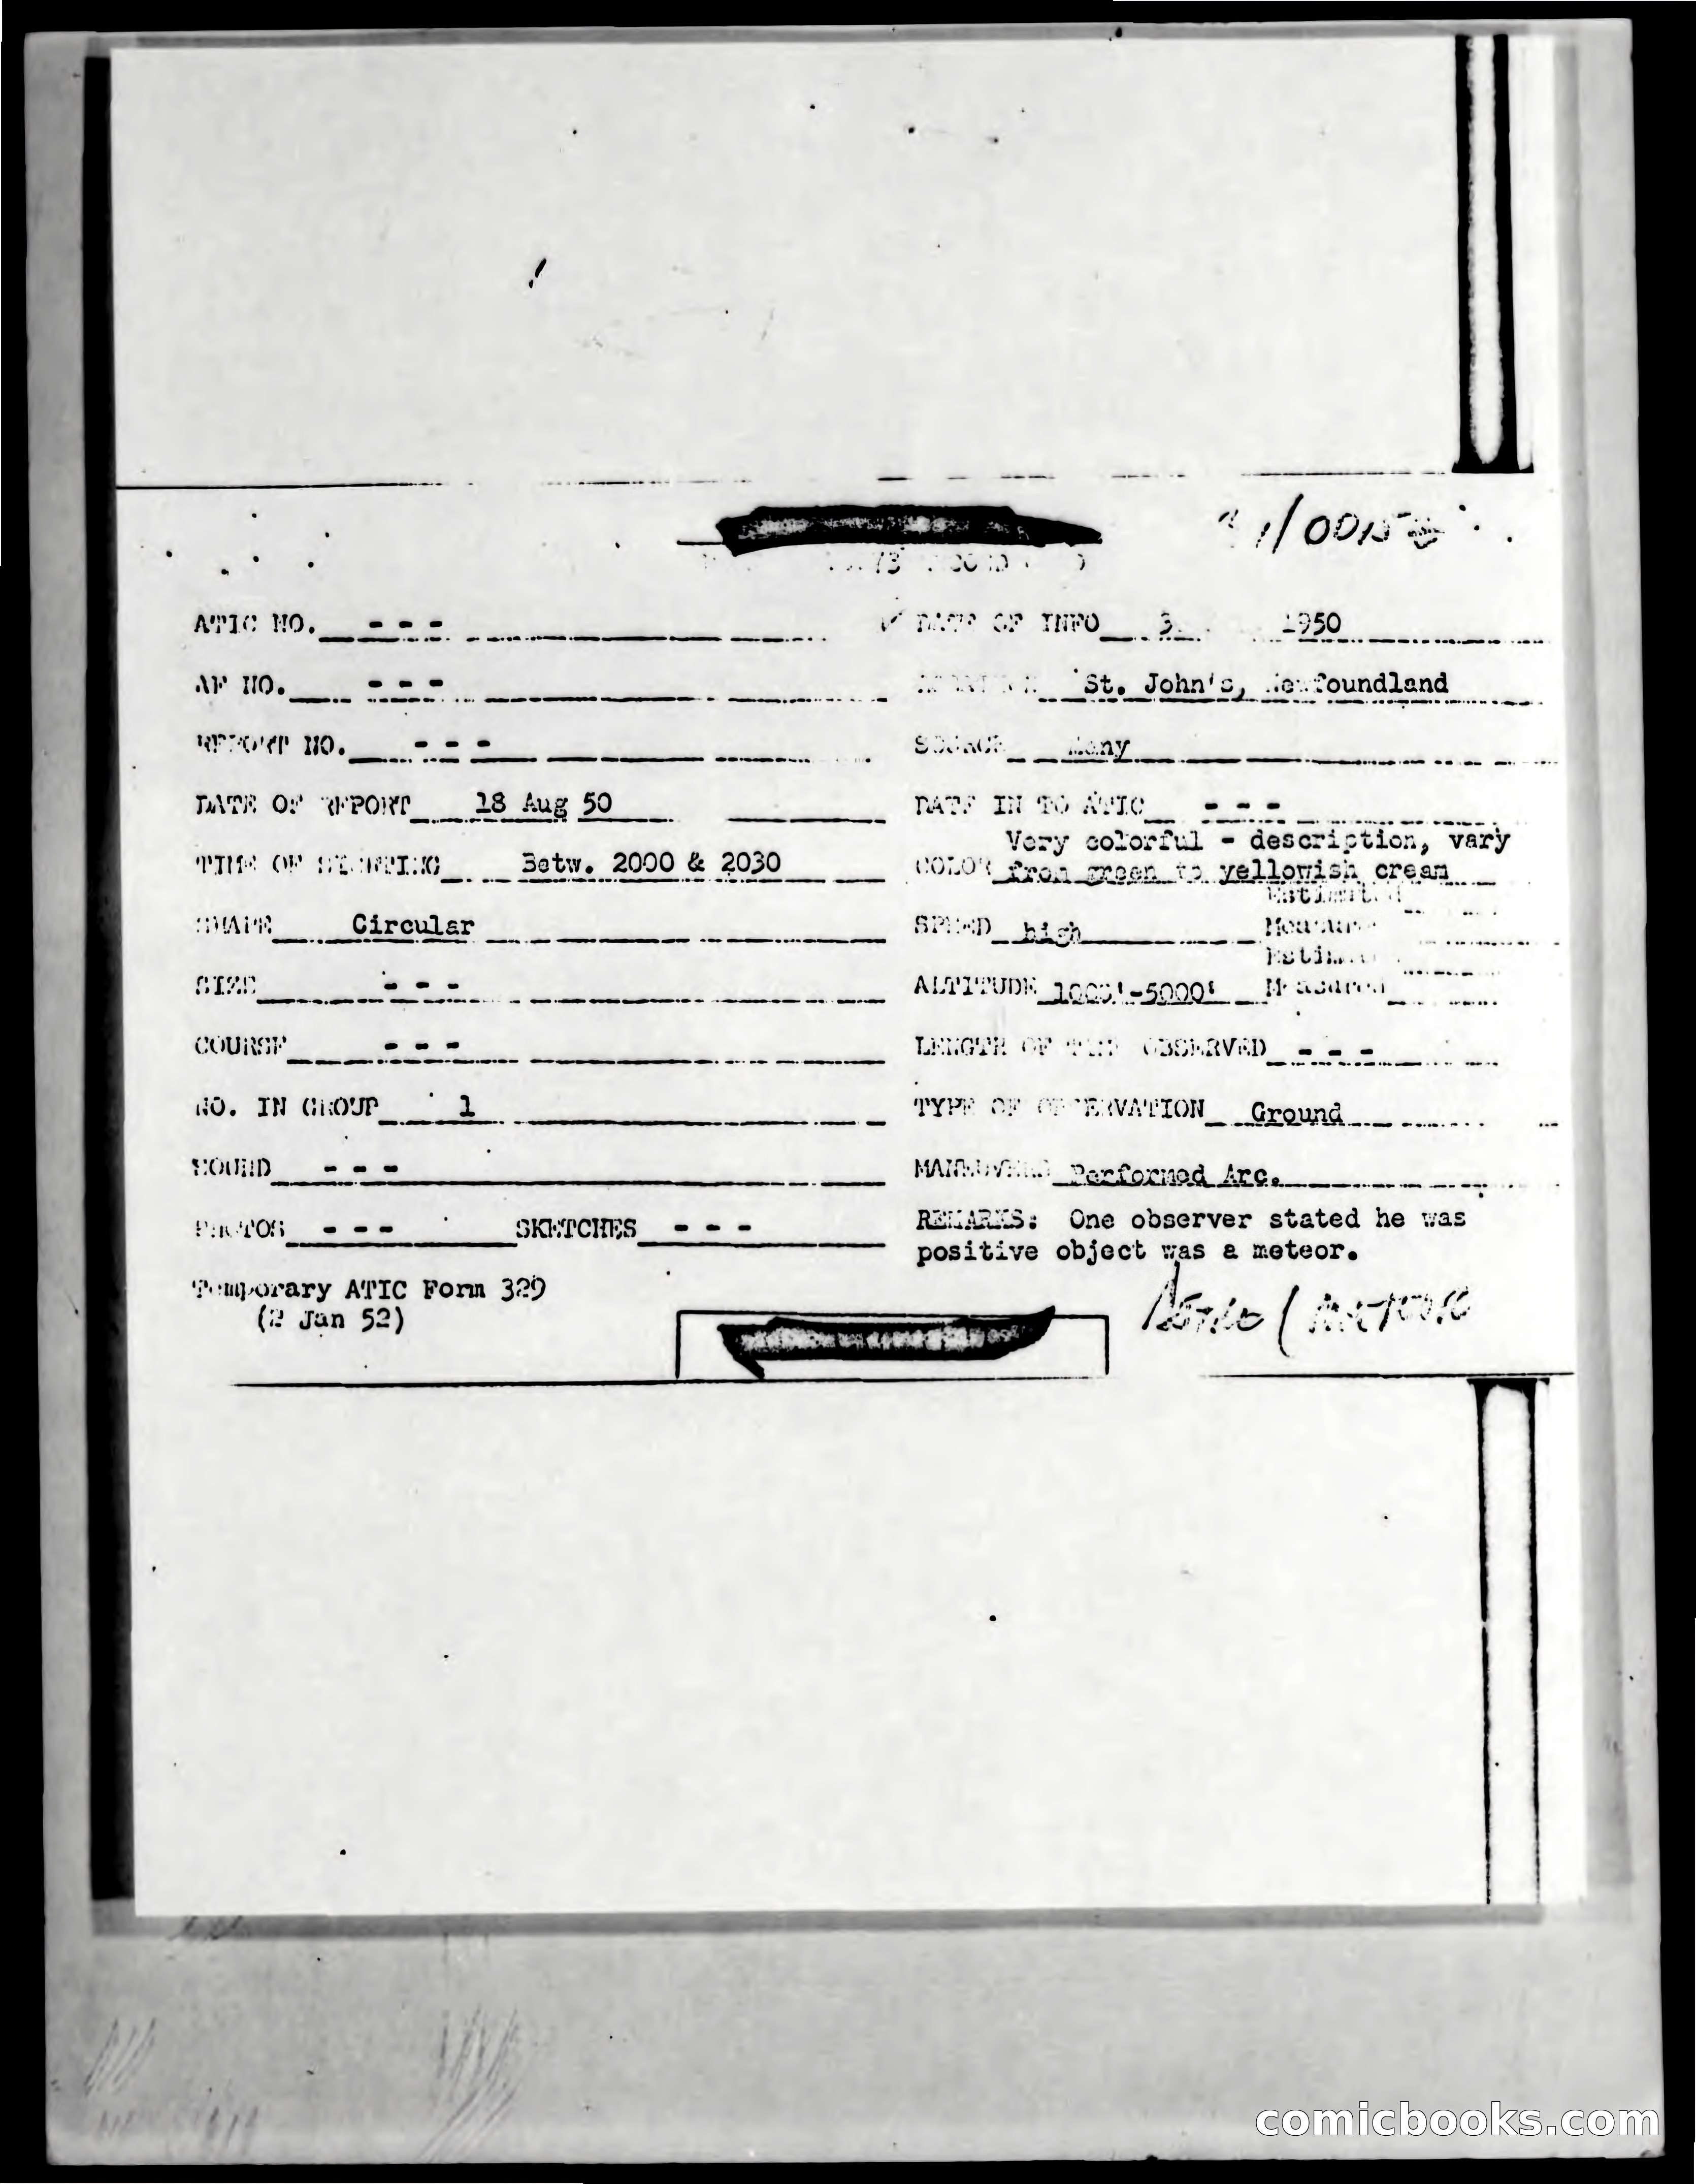 ATIC NO. - - -
DATE OF INFO 3 1950
AF NO. - - -
St. John's, Newfoundland
REPORT NO. - - -
SOURCE Many
DATE OF REPORT 18 Aug 50
DATE IN TO ATIC - - -
Very colorful - description, vary
TIME OF SIGHTING Betw. 2000 & 2030
COLOR from green to yellowish cream
Estimated
SHAPE Circular
SPEED high Measured
Estimated
SIZE - - -
ALTITUDE 1000'-5000' Measured
COURSE - - -
LENGTH OF TIME OBSERVED - - -
NO. IN GROUP 1
TYPE OF OBSERVATION Ground
SOUND - - -
MANEUVERS Performed Arc.
PHOTOS - - - SKETCHES - - -
REMARKS: One observer stated he was
positive object was a meteor.
Temporary ATIC Form 329
(2 Jan 52)
comicbooks.com